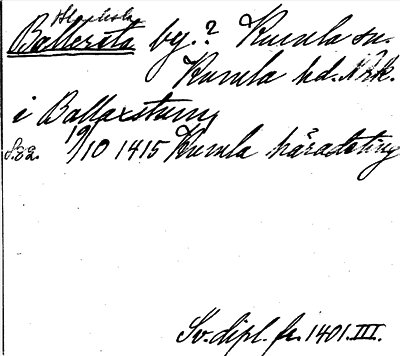 Ballersta by.? Kumla sn.
Kumla hd. Nrk.
i Ballaxstum
19/10 1415 Kumla häradsting
Sv. dipl. fr. 1401. III.